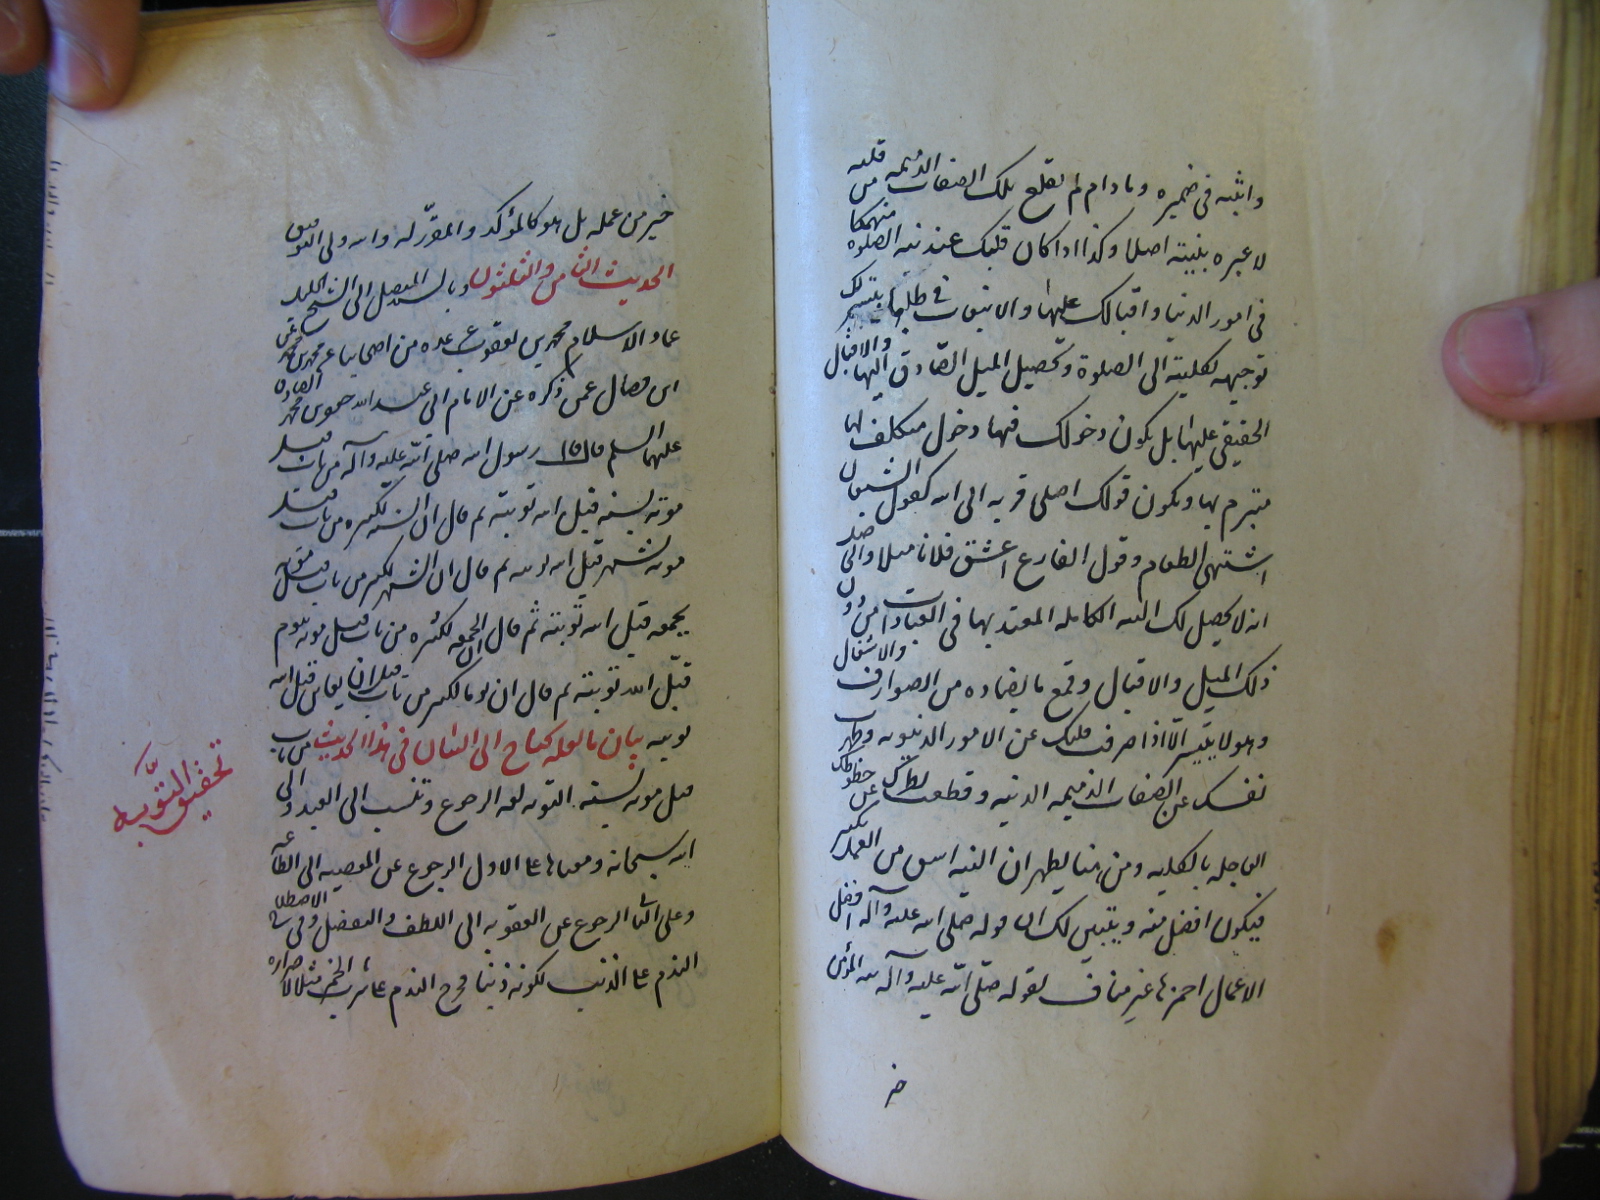 واثبته في ضميره وما دام لم تقلع تلك الصفات الذميمه من قلبه
لا عبره بنيته اصلا وكذا اذا كان قلبك عند نيه الصلوه منهمكا
في امور الدنيا واقبالك عليها والانبعاث في طلبها يتيسر لك
توجيهه بكليته الى الصلوة وتحصيل الميل الصادق اليها والاقبال
الحقيقي عليها بل يكون دخولك فيها دخول متكلف لها
متبرم بها ويكون قولك اصلي قربه الى الله كقول الشبعان
اشتهي الطعام وقول الفارغ اعشق فلانا مثلا والحاصل
انه لا يحصل لك النيه الكامله المعتد بها في العبادات من دون
ذلك الميل والاقبال وقمع ما يضاده من الصوارف والاشغال
وهو لا يتيسر الا اذا صرفت قلبك عن الامور الدنيويه وطهرت
نفسك عن الصفات الذميمه الدنيه وقطعت نظرك عن حظوظك
العاجله بالكليه ومن هنا يظهر ان النيه اشق من العمل بكثير
فيكون افضل منه ويتبين لك ان قوله صلى الله عليه وآله افضل
الاعمال احمزها غير مناف لقوله صلى الله عليه وآله نيه المؤمن
خير
خير من عمله بل هو كالمؤكد والمقرر له والله ولي التوفيق
الحديث الثامن والثلثون وبالسند المتصل الى الشيخ الجليل
عماد الاسلام محمد بن يعقوب عن عده من اصحابنا عن محمد بن محمد عن
ابن فضال عمن ذكره عن الامام ابي عبد الله جعفر بن محمد الصادق
عليهما السلم قال قال رسول الله صلى الله عليه وآله من تاب قبل
موته بسنه قبل الله توبته ثم قال ان السنه لكثيره من تاب قبل
موته بشهر قبل الله توبته ثم قال ان الشهر لكثير من تاب قبل موته
بجمعه قبل الله توبته ثم قال ان الجمعه لكثيره من تاب قبل موته بيوم
قبل الله توبته ثم قال ان يوما لكثير من تاب قبل ان يعاين قبل الله
توبته بيان ما لعله يحتاج الى البيان في هذا الحديث من تاب
قبل موته بسنه التوبه لغه الرجوع وتنسب الى العبد والى
الله سبحانه ومعناها على الاول الرجوع عن المعصيه الى الطاعه
وعلى الثاني الرجوع عن العقوبه الى اللطف والتفضل وفي الاصطلاح
الندم على الذنب لكونه ذنبا فخرج الندم على شرب الخمر مثلا لاضراره
تحقيق التوبه